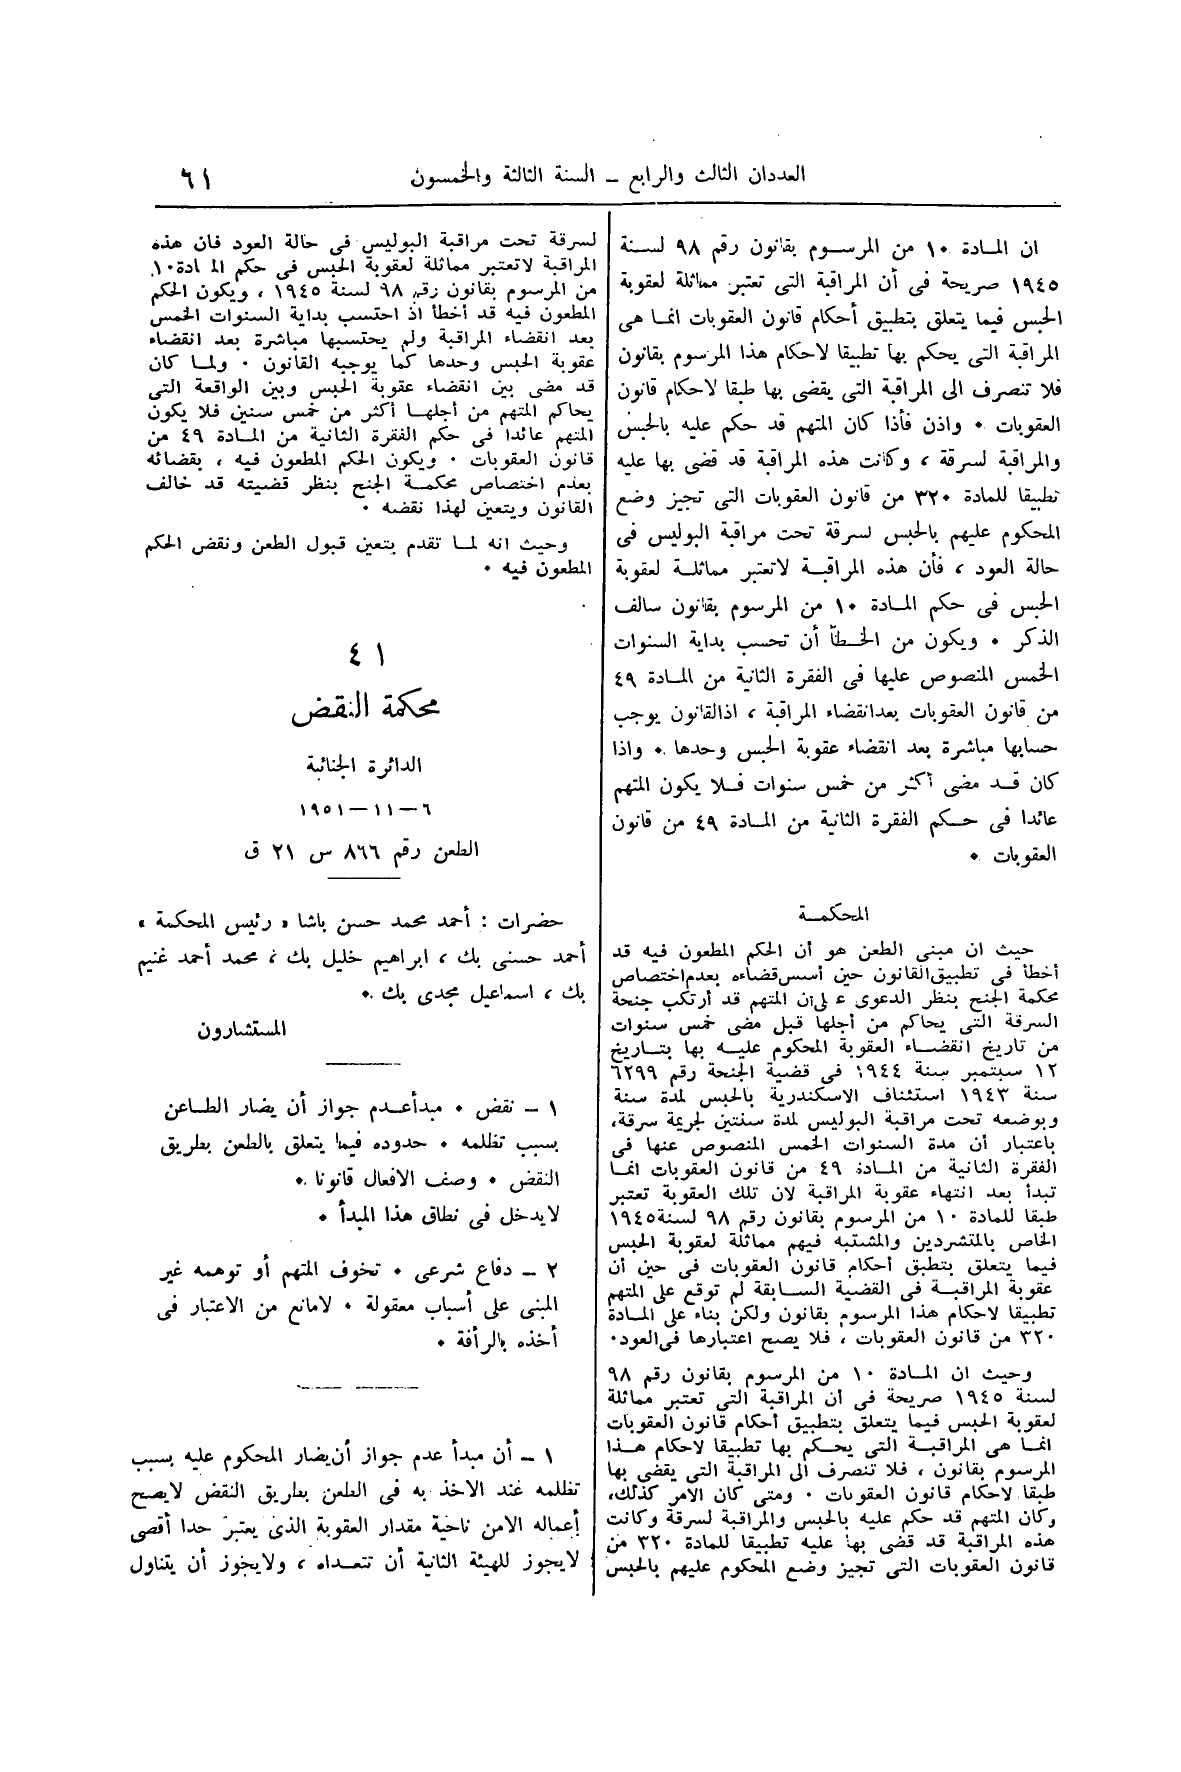 العددان الثالث والرابع – السنة الثالثة والخمسون
٦١
ان المادة ١٠ من المرسوم بقانون رقم ٩٨ لسنة
١٩٤٥ صريحة فى أن المراقبة التى تعتبر مماثلة لعقوبة
الحبس فيما يتعلق بتطبيق أحكام قانون العقوبات انما هى
المراقبة التى يحكم بها تطبيقا لاحكام هذا المرسوم بقانون
فلا تنصرف الى المراقبة التى يقضى بها طبقا لاحكام قانون
العقوبات . واذن فأذا كان المتهم قد حكم عليه بالحبس
والمراقبة لسرقة ، وكانت هذه المراقبة قد قضى بها عليه
تطبيقا للمادة ٣٢٠ من قانون العقوبات التى تجيز وضع
المحكوم عليهم بالحبس لسرقة تحت مراقبة البوليس فى
حالة العود ، فأن هذه المراقبة لاتعتبر مماثلة لعقوبة
الحبس فى حكم المادة ١٠ من المرسوم بقانون سالف
الذكر . ويكون من الخطأ أن تحسب بداية السنوات
الخمس المنصوص عليها فى الفقرة الثانية من المادة ٤٩
من قانون العقوبات بعدانقضاء المراقبة ، اذالقانون يوجب
حسابها مباشرة بعد انقضاء عقوبة الحبس وحدها . واذا
كان قد مضى أكثر من خمس سنوات فلا يكون المتهم
عائدا فى حكم الفقرة الثانية من المادة ٤٩ من قانون
العقوبات .
المحكمة
حيث ان مبنى الطعن هو أن الحكم المطعون فيه قد
أخطأ فى تطبيق القانون حين أسس قضاءه بعدم اختصاص
محكمة الجنح بنظر الدعوى على أن المتهم قد أرتكب جنحة
السرقة التى يحاكم من أجلها قبل مضى خمس سنوات
من تاريخ انقضاء العقوبة المحكوم عليه بها بتاريخ
١٢ سبتمبر سنة ١٩٤٤ فى قضية الجنحة رقم ٦٢٩٩
سنة ١٩٤٣ استئناف الاسكندرية بالحبس لمدة سنة
وبوضعه تحت مراقبة البوليس لمدة سنتين لجريمة سرقة،
باعتبار أن مدة السنوات الخمس المنصوص عنها فى
الفقرة الثانية من المادة ٤٩ من قانون العقوبات انما
تبدأ بعد انتهاء عقوبة المراقبة لان تلك العقوبة تعتبر
طبقا للمادة ١٠ من المرسوم بقانون رقم ٩٨ لسنة ١٩٤٥
الخاص بالمتشردين والمشتبه فيهم مماثلة لعقوبة الحبس
فيما يتعلق بتطبق أحكام قانون العقوبات فى حين أن
عقوبة المراقبة فى القضية السابقة لم توقع على المتهم
تطبيقا لاحكام هذا المرسوم بقانون ولكن بناء على المادة
٣٢٠ من قانون العقوبات ، فلا يصح اعتبارها فى العود.
وحيث ان المادة ١٠ من المرسوم بقانون رقم ٩٨
لسنة ١٩٤٥ صريحة فى أن المراقبة التى تعتبر مماثلة
لعقوبة الحبس فيما يتعلق بتطبيق أحكام قانون العقوبات
انما هى المراقبة التى يحكم بها تطبيقا لاحكام هذا
المرسوم بقانون ، فلا تنصرف الى المراقبة التى يقضى بها
طبقا لاحكام قانون العقوبات . ومتى كان الامر كذلك،
وكان المتهم قد حكم عليه بالحبس والمراقبة لسرقة وكانت
هذه المراقبة قد قضى بها عليه تطبيقا للمادة ٣٢٠ من
قانون العقوبات التى تجيز وضع المحكوم عليهم بالحبس
لسرقة تحت مراقبة البوليس فى حالة العود فان هذه
المراقبة لاتعتبر مماثلة لعقوبة الحبس فى حكم المادة ١٠
من المرسوم بقانون رقم ٩٨ لسنة ١٩٤٥ ، ويكون الحكم
المطعون فيه قد أخطأ اذ احتسب بداية السنوات الخمس
بعد انقضاء المراقبة ولم يحتسبها مباشرة بعد انقضاء
عقوبة الحبس وحدها كما يوجبه القانون . ولما كان
قد مضى بين انقضاء عقوبة الحبس وبين الواقعة التى
يحاكم المتهم من أجلها أكثر من خمس سنين فلا يكون
المتهم عائدا فى حكم الفقرة الثانية من المادة ٤٩ من
قانون العقوبات . ويكون الحكم المطعون فيه ، بقضائه
بعدم اختصاص محكمة الجنح بنظر قضيته قد خالف
القانون ويتعين لهذا نقضه .
وحيث انه لما تقدم يتعين قبول الطعن ونقض الحكم
المطعون فيه .
٤١
محكمة النقض
الدائرة الجنائية
٦ – ١١ – ١٩٥١
الطعن رقم ٨٦٦ س ٢١ ق
حضرات : أحمد محمد حسن باشا « رئيس المحكمة »
أحمد حسنى بك ، ابراهيم خليل بك ، محمد أحمد غنيم
بك ، اسماعيل مجدى بك .
المستشارون
١ – نقض . مبدأعدم جواز أن يضار الطاعن
بسبب تظلمه . حدوده فيما يتعلق بالطعن بطريق
النقض . وصف الافعال قانونا .
لايدخل فى نطاق هذا المبدأ .
٢ – دفاع شرعى . تخوف المتهم أو توهمه غير
المبنى على أسباب معقولة . لامانع من الاعتبار فى
أخذه بالرأفة .
١ – أن مبدأ عدم جواز أن يضار المحكوم عليه بسبب
تظلمه عند الاخذ به فى الطعن بطريق النقض لايصح
أعماله الامن ناحية مقدار العقوبة الذى يعتبر حدا أقصى
لايجوز للهيئة الثانية أن تتعداه ، ولايجوز أن يتناول